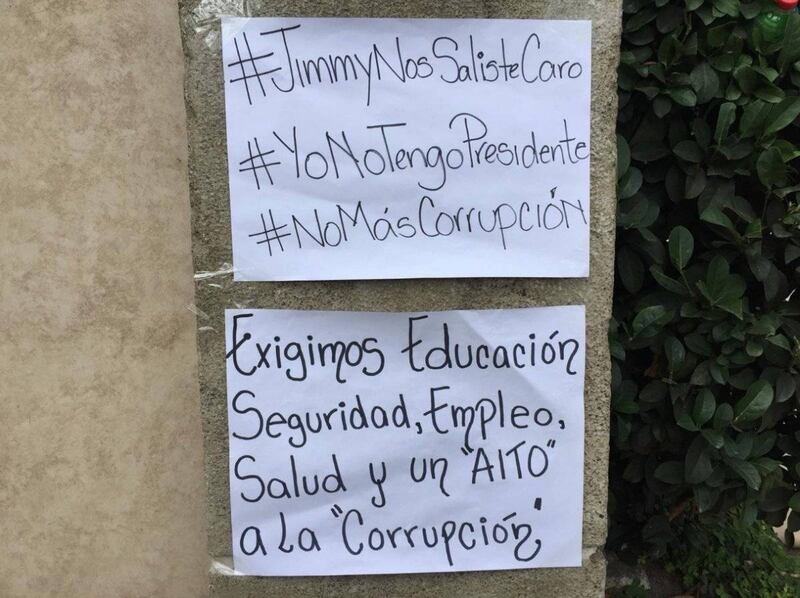 #JimmyNosSalisteCaro
#YoNoTengoPresidente
#NoMásCorrupción
Exigimos Educación
Seguridad, Empleo,
Salud y un "AlTO"
a la "Corrupción"